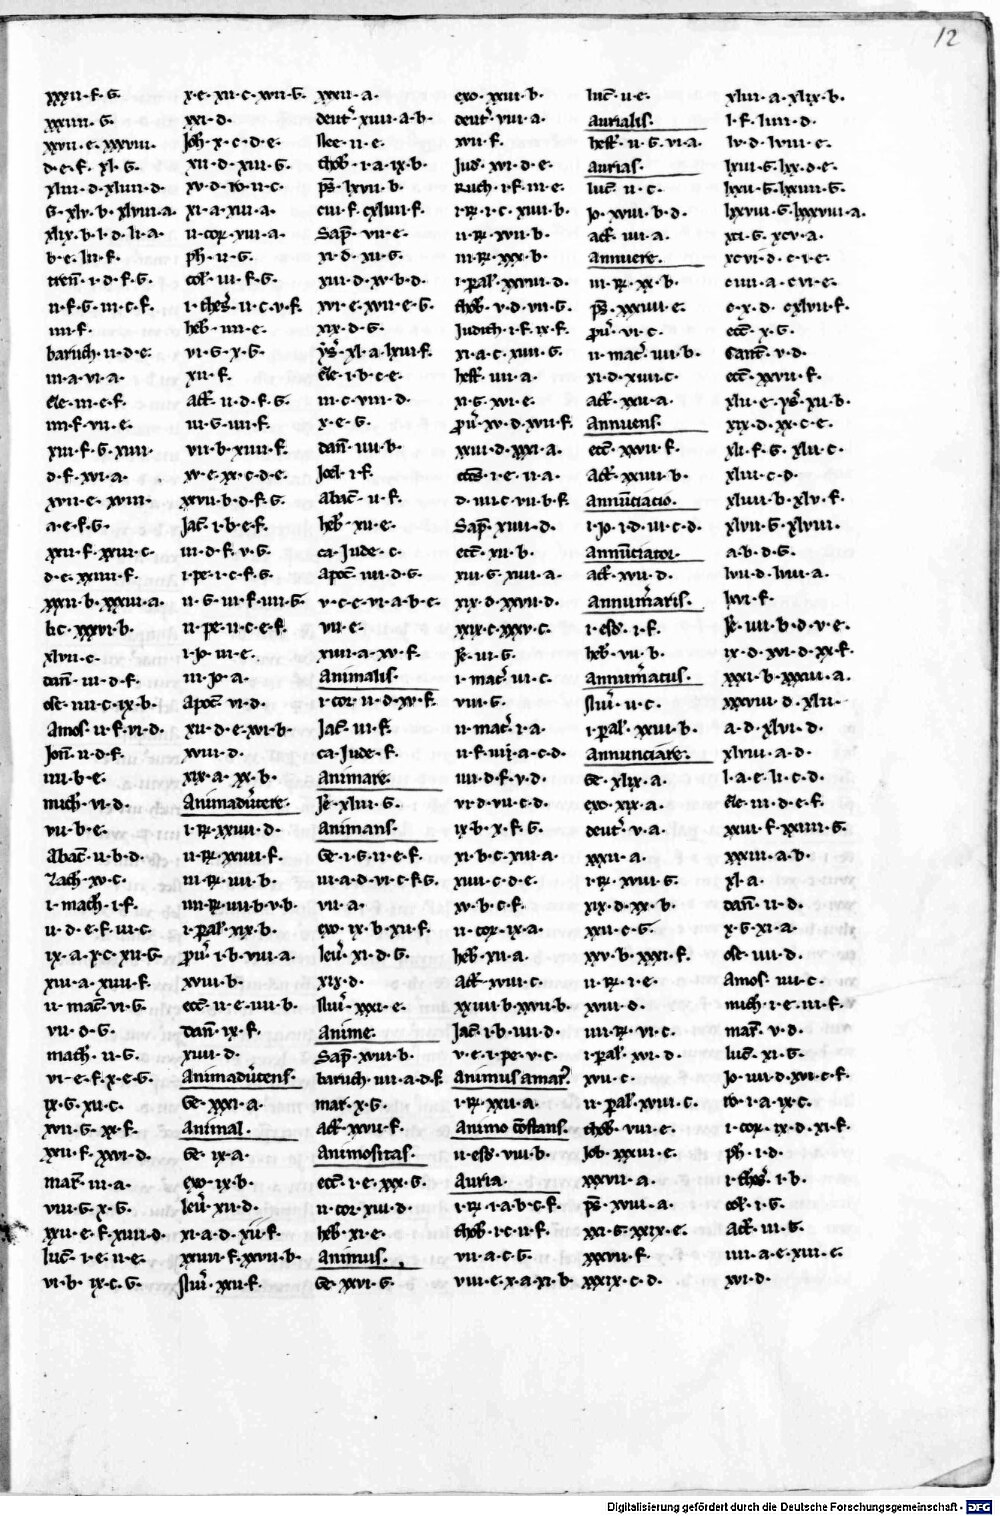 12
xxxii·f·G·
xxxiiii·G·
xxvii·e·xxxviii·
d·e·f·xl·G·
xliii·d·xliiii·d·
G·xlv·b·xlviii·a·
xlix·b·l·d·li·a·
b·e·lii·f·
tren̄·i·d·f·G·
ii·f·G·iii·c·f·
iiii·f·
baruch·ii·d·e·
iii·a·vi·a·
eȝe·iii·e·f·
iiii·f·vii·e·
xiii·f·G·xiiii·
d·f·xvi·a·
xvii·e·xviii·
a·e·f·G·
xxii·f·xxiii·c·
d·e·xxiiii·f·
xxxii·b·xxxiii·a·
b·c·xxxvi·b·
xlvii·c·
dan̄·iii·d·f·
ose·iiii·c·ix·b·
Amos·ii·f·vi·d·
Jon̄·ii·d·f·
iiii·b·e·
mich·vi·d·
vii·b·e·
Abac̄·ii·b·d·
zach·xi·c·
i·mach·i·f·
ii·d·e·f·iii·c·
ix·a·x·c·xii·G·
xiii·a·xiiii·f·
ii·mac̄·vi·G·
vii·d·G·
math·ii·G·
vi·e·f·x·e·G·
ix·G·xii·c·
xvii·G·xx·f·
xxii·f·xxvi·d·
mar̄·iii·a·
viii·G·x·G·
xii·e·f·xiiii·d·
luc̄·i·e·ii·e·
vi·b·ix·c·G·
x·e·xii·c·xvii·G·
xxi·d·
Joh̄·x·c·d·e·
xii·d·xiii·G·
xv·d·ro·ii·c·
xi·a·xiii·a·
ii·cor·xii·a·
ph·ii·G·
col·iii·f·G·
i·thes̄·ii·c·v·f·
heb̄·iiii·c·
vi·G·x·G·
xii·f·
act̄·ii·d·f·G·
iii·G·iiii·f·
vii·b·xiiii·f·
xv·e·xx·c·d·e·
xxvii·b·d·f·G·
Jac̄·i·b·e·f·
iii·d·f·v·G·
i·pe·i·c·f·G·
ii·G·iii·f·iiii·G·
ii·pe·ii·c·e·f·
i·jo·iii·e·
iii·Jo·a·
Apoc̄·vi·d·
xii·d·e·xvi·b·
xviii·d·
xix·a·xx·b·
Animadūtere·
i·R·xxiiii·d·
ii·R·xxiiii·f·
iii·R·iiii·b·
iiii·R·iiii·b·v·b·
i·pal·xix·b·
pū·i·b·viii·a·
xviii·b·
ecc̄·ii·e·iiii·b·
dan̄·ix·f·
xiiii·d·
Animadūtens·
Ge·xxxi·a·
Animal·
Ge·ix·a·
exo·ix·b·
leū·xii·d·
xi·a·d·xii·f·
xxiiii·f·xxvii·b·
nuī·xxii·f·
xxxii·a·
deut·xiii·a·b·
nee·ii·e·
thob·i·a·ix·b·
ps̄·lxvii·b·
ciii·f·cxliiii·f·
Sap̄·vii·e·
xi·d·xii·G·
xiii·d·xv·b·d·
xvi·e·xvii·e·G·
xix·d·G·
ys̄·xl·a·lxiii·f·
eȝe·i·b·c·e·
iii·c·viii·d·
x·e·G·
dan̄·iiii·b·
Joel·i·f·
Abac̄·ii·f·
heb̄·xii·e·
ca·Jude·c·
apoc̄·iiii·d·G·
v·c·e·vi·a·b·c·
vii·e·
xiiii·a·xv·f·
Animalis·
i·cor·ii·d·xv·f·
Jac̄·iii·f·
ca·Jude·f·
Animare·
Je·xliii·G·
Animans·
Ge·i·G·ii·e·f·
iii·a·d·vi·c·f·G·
vii·a·
exo·ix·b·xii·f·
leū·xi·d·G·
xix·d·
nuī·xxxi·e·
Anime·
Sap̄·xviii·b·
baruch·iiii·a·d·f·
mar·x·G·
act̄·xxvii·f·
Animositas·
ecc̄·i·e·xxx·G·
ii·cor·xiii·d·
heb̄·xi·e·
Animus·
Ge·xxvi·G·
exo·xxiii·b·
deut·viii·a·
xvii·f·
Jud·xvi·d·e·
Ruth·i·f·iii·e·
i·R·i·c·xiiii·b·
ii·R·xvii·b·
iii·R·xxx·b·
i·pal·xxviii·d·
thob·v·d·vii·G·
Judith·i·f·ix·f·
xi·a·c·xiiii·G·
hest̄·iiii·a·
xi·G·xvi·e·
pū·xv·d·xvii·f·
xxiii·d·xxxi·a·
eccs̄·i·e·ii·a·
d·iii·c·vii·b·f·
Sap̄·xiiii·d·
ecc̄·xii·b·
xiii·G·xiiii·a·
xix·d·xxvii·d·
xxix·c·xxxv·c·
Je·iii·G·
i·mac̄·iii·c·
viii·G·
ii·mac̄·i·a·
ii·f·iii·a·c·d·
iiii·d·f·v·d·
vi·d·vii·c·d·
ix·b·x·f·G·
xi·b·c·xiii·a·
xiii·c·d·e·
xv·b·c·f·
ii·cor·ix·a·
heb̄·xii·a·
act̄·xviii·c·
xxiiii·b·xxvii·b·
Jac̄·i·b·iiii·d·
v·e·i·pe·v·c·
Animus amar̄·
i·R·xxii·a·
Animo c̄stans·
ii·esd·viii·b·
Auria·
i·R·i·a·b·c·f·
thob·i·c·ii·f·
vii·a·c·G·
viii·e·x·a·xi·b·
luc̄·ii·e·
Aurialis·
hest̄·ii·G·vi·a·
Aurias·
luc̄·ii·c·
Jo·xviii·b·d·
act̄·iiii·a·
Annuere·
iii·R·xx·b·
ps̄·xxxiiii·e·
pū·vi·c·
ii·mac̄·iiii·b·
xi·d·xiiii·c·
act̄·xxi·a·
Annuens·
ecc̄·xxvii·f·
act̄·xxiiii·b·
Annūciacio·
i·Jo·i·d·iii·c·d·
Annūciator·
act̄·xvii·d·
Annum̄aris·
i·esd·i·f·
heb̄·vii·b·
Annum̄atus·
nuī·ii·c·
i·pal·xxiii·b·
Annunciare·
Ge·xlix·a·
exo·xix·a·
deut·v·a·
xxxii·a·
i·R·xviii·G·
xix·d·xx·b·
xxii·e·G·
xxv·b·xxxi·f·
ii·R·i·e·
xviii·d·
iiii·R·vi·c·
i·pal·xvi·d·
xvii·c·
ii·pal·xviii·c·
thob·viii·e·
Job·xxxiii·e·
xxxvii·a·
ps̄·xviii·a·
xxi·G·xxix·e·
xxxvii·f·
xxxix·c·d·
xliii·a·xlix·b·
l·f·liiii·d·
lv·d·lviii·e·
lxiii·G·lxx·d·e·
lxxii·G·lxxiiii·G·
lxxviii·G·lxxxviii·a·
xci·G·xcv·a·
xcvi·d·c·i·e·
c·iii·a·c·vi·e·
c·x·d·cxlvii·f·
ecc̄·x·G·
Cant̄·v·d·
ecc̄·xxvii·f·
xlii·e·ys̄·xii·b·
xix·d·xx·c·e·
xli·f·G·xlii·c·
xliii·c·d·
xliiii·b·xlv·f·
xlvii·G·xlviii·
a·b·d·G·
lvii·d·lviii·a·
lxvi·f·
Je·iiii·b·d·v·e·
ix·d·xvi·d·xx·f·
xxxi·b·xxxiii·a·
xxxviii·d·xlii·
a·d·xlvi·d·
xlviii·a·d·
l·a·c·li·c·d·
eȝe·iii·d·e·f·
xxiii·f·xxiiii·G·
xxxiii·a·b·
xl·a·
dan̄·ii·d·
x·G·xi·a·
ose·iiii·d·
Amos·iiii·c·
mich·i·e·iii·f·
mar̄·v·d·
luc̄·xi·G·
Jo·iiii·d·xvi·c·f·
ro·i·a·ix·c·
i·cor·ix·d·xi·f·
ph·i·d·
i·thes̄·i·b·
col·i·G·
act̄·iii·G·
iiii·a·e·xiii·e·
xvi·d·
Digitalisierung gefördert durch die Deutsche Forschungsgemeinschaft · DFG